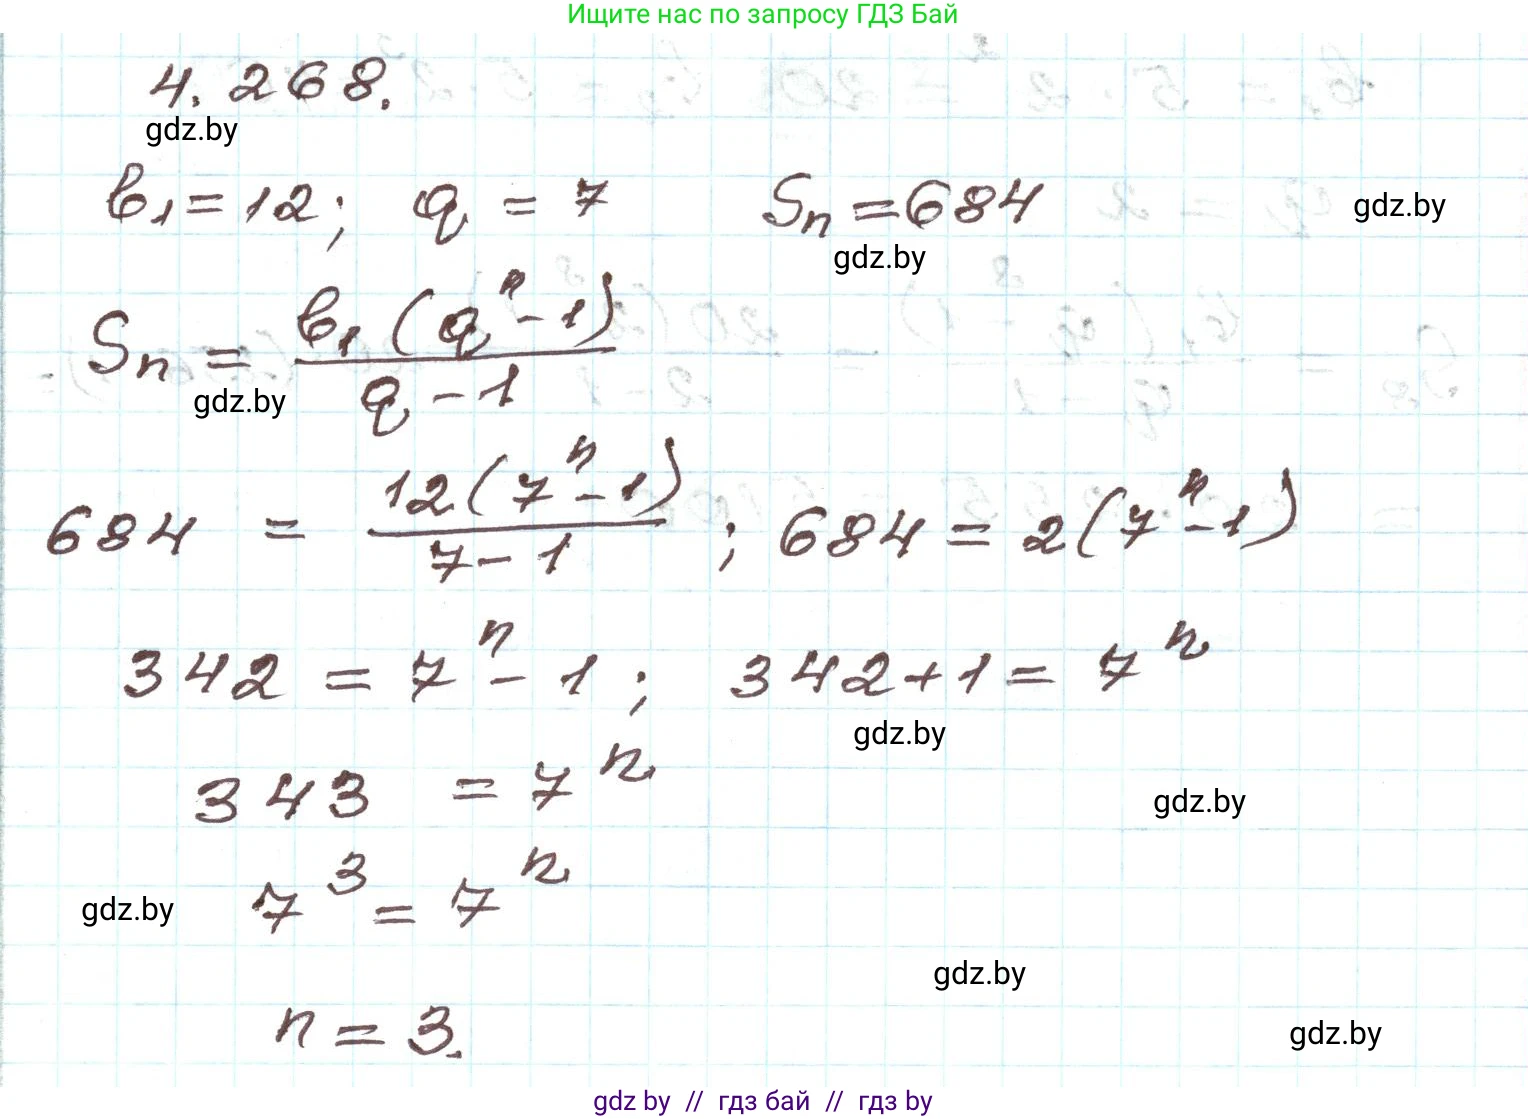 Ищите нас по запросу ГДЗ Бай
4.268.
gdz.by
b₁ = 12; q = 7 Sₙ = 684
gdz.by
gdz.by
Sₙ = b₁(qⁿ - 1) / q - 1
gdz.by
684 = 12(7ⁿ - 1) / 7 - 1 ; 684 = 2(7ⁿ - 1)
342 = 7ⁿ - 1 ; 342 + 1 = 7ⁿ
gdz.by
343 = 7ⁿ
gdz.by
7³ = 7ⁿ
gdz.by
gdz.by
n = 3.
gdz.by
gdz by // гдз бай // гдз by